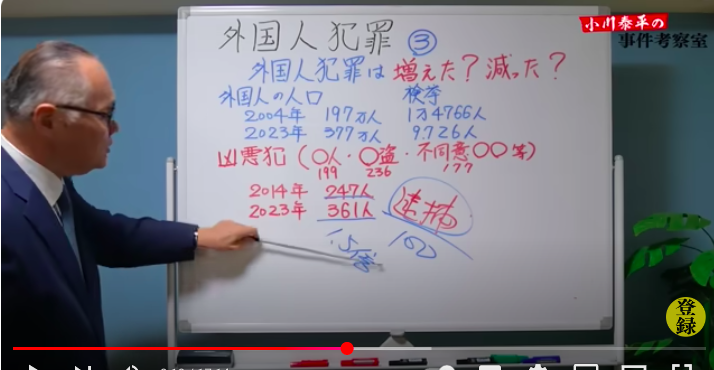 小川泰平の
事件考察室
外国人犯罪 ③
外国人犯罪は増えた?減った?
外国人の人口 検挙
2004年 197万人 1万4766人
2023年 377万人 9.726人
凶悪犯(〇人・〇盗・不同意〇〇等)
199 236 177
2014年 247人
2023年 361人 逮捕
1.5倍
登録